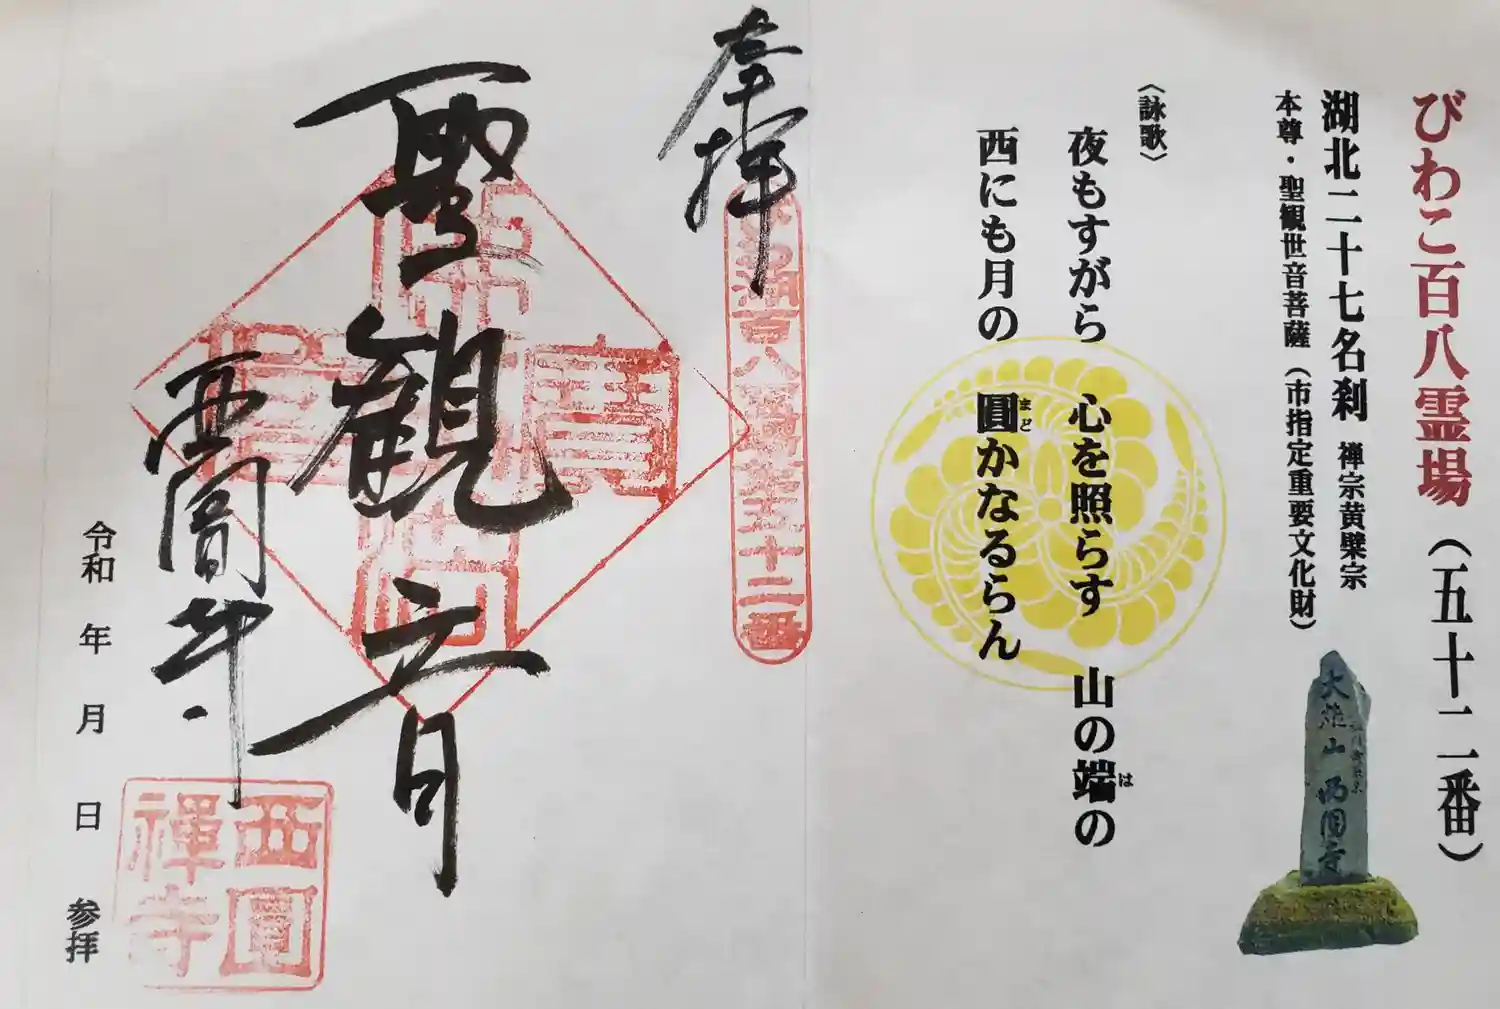 びわこ百八霊場（五十二番）
湖北二十七名刹 禅宗黄檗宗
本尊・聖観世音菩薩（市指定重要文化財）
〈詠歌〉
夜もすがら 心を照らす 山の端の
は
西にも月の 圓かなるらん
まど
山 西圓寺
奉拝
湖百八霊場第五十二番
聖観音
佛法僧寳
西圓寺
令和 年 月 日 参拝
西圓禅寺